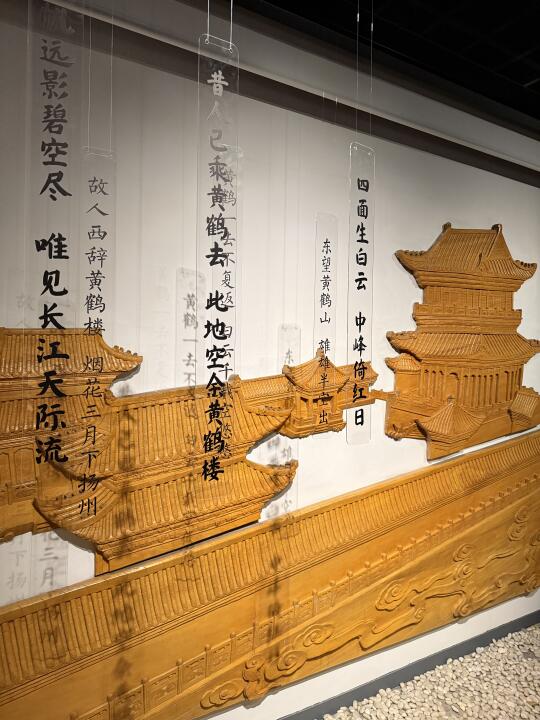 远影碧空尽 唯见长江天际流
故人西辞黄鹤楼 烟花三月下扬州
昔人已乘黄鹤去 此地空余黄鹤楼
黄鹤一去不复返 白云千载空悠悠
东望黄鹤山 雄雄半空出
四面生白云 中峰倚红日